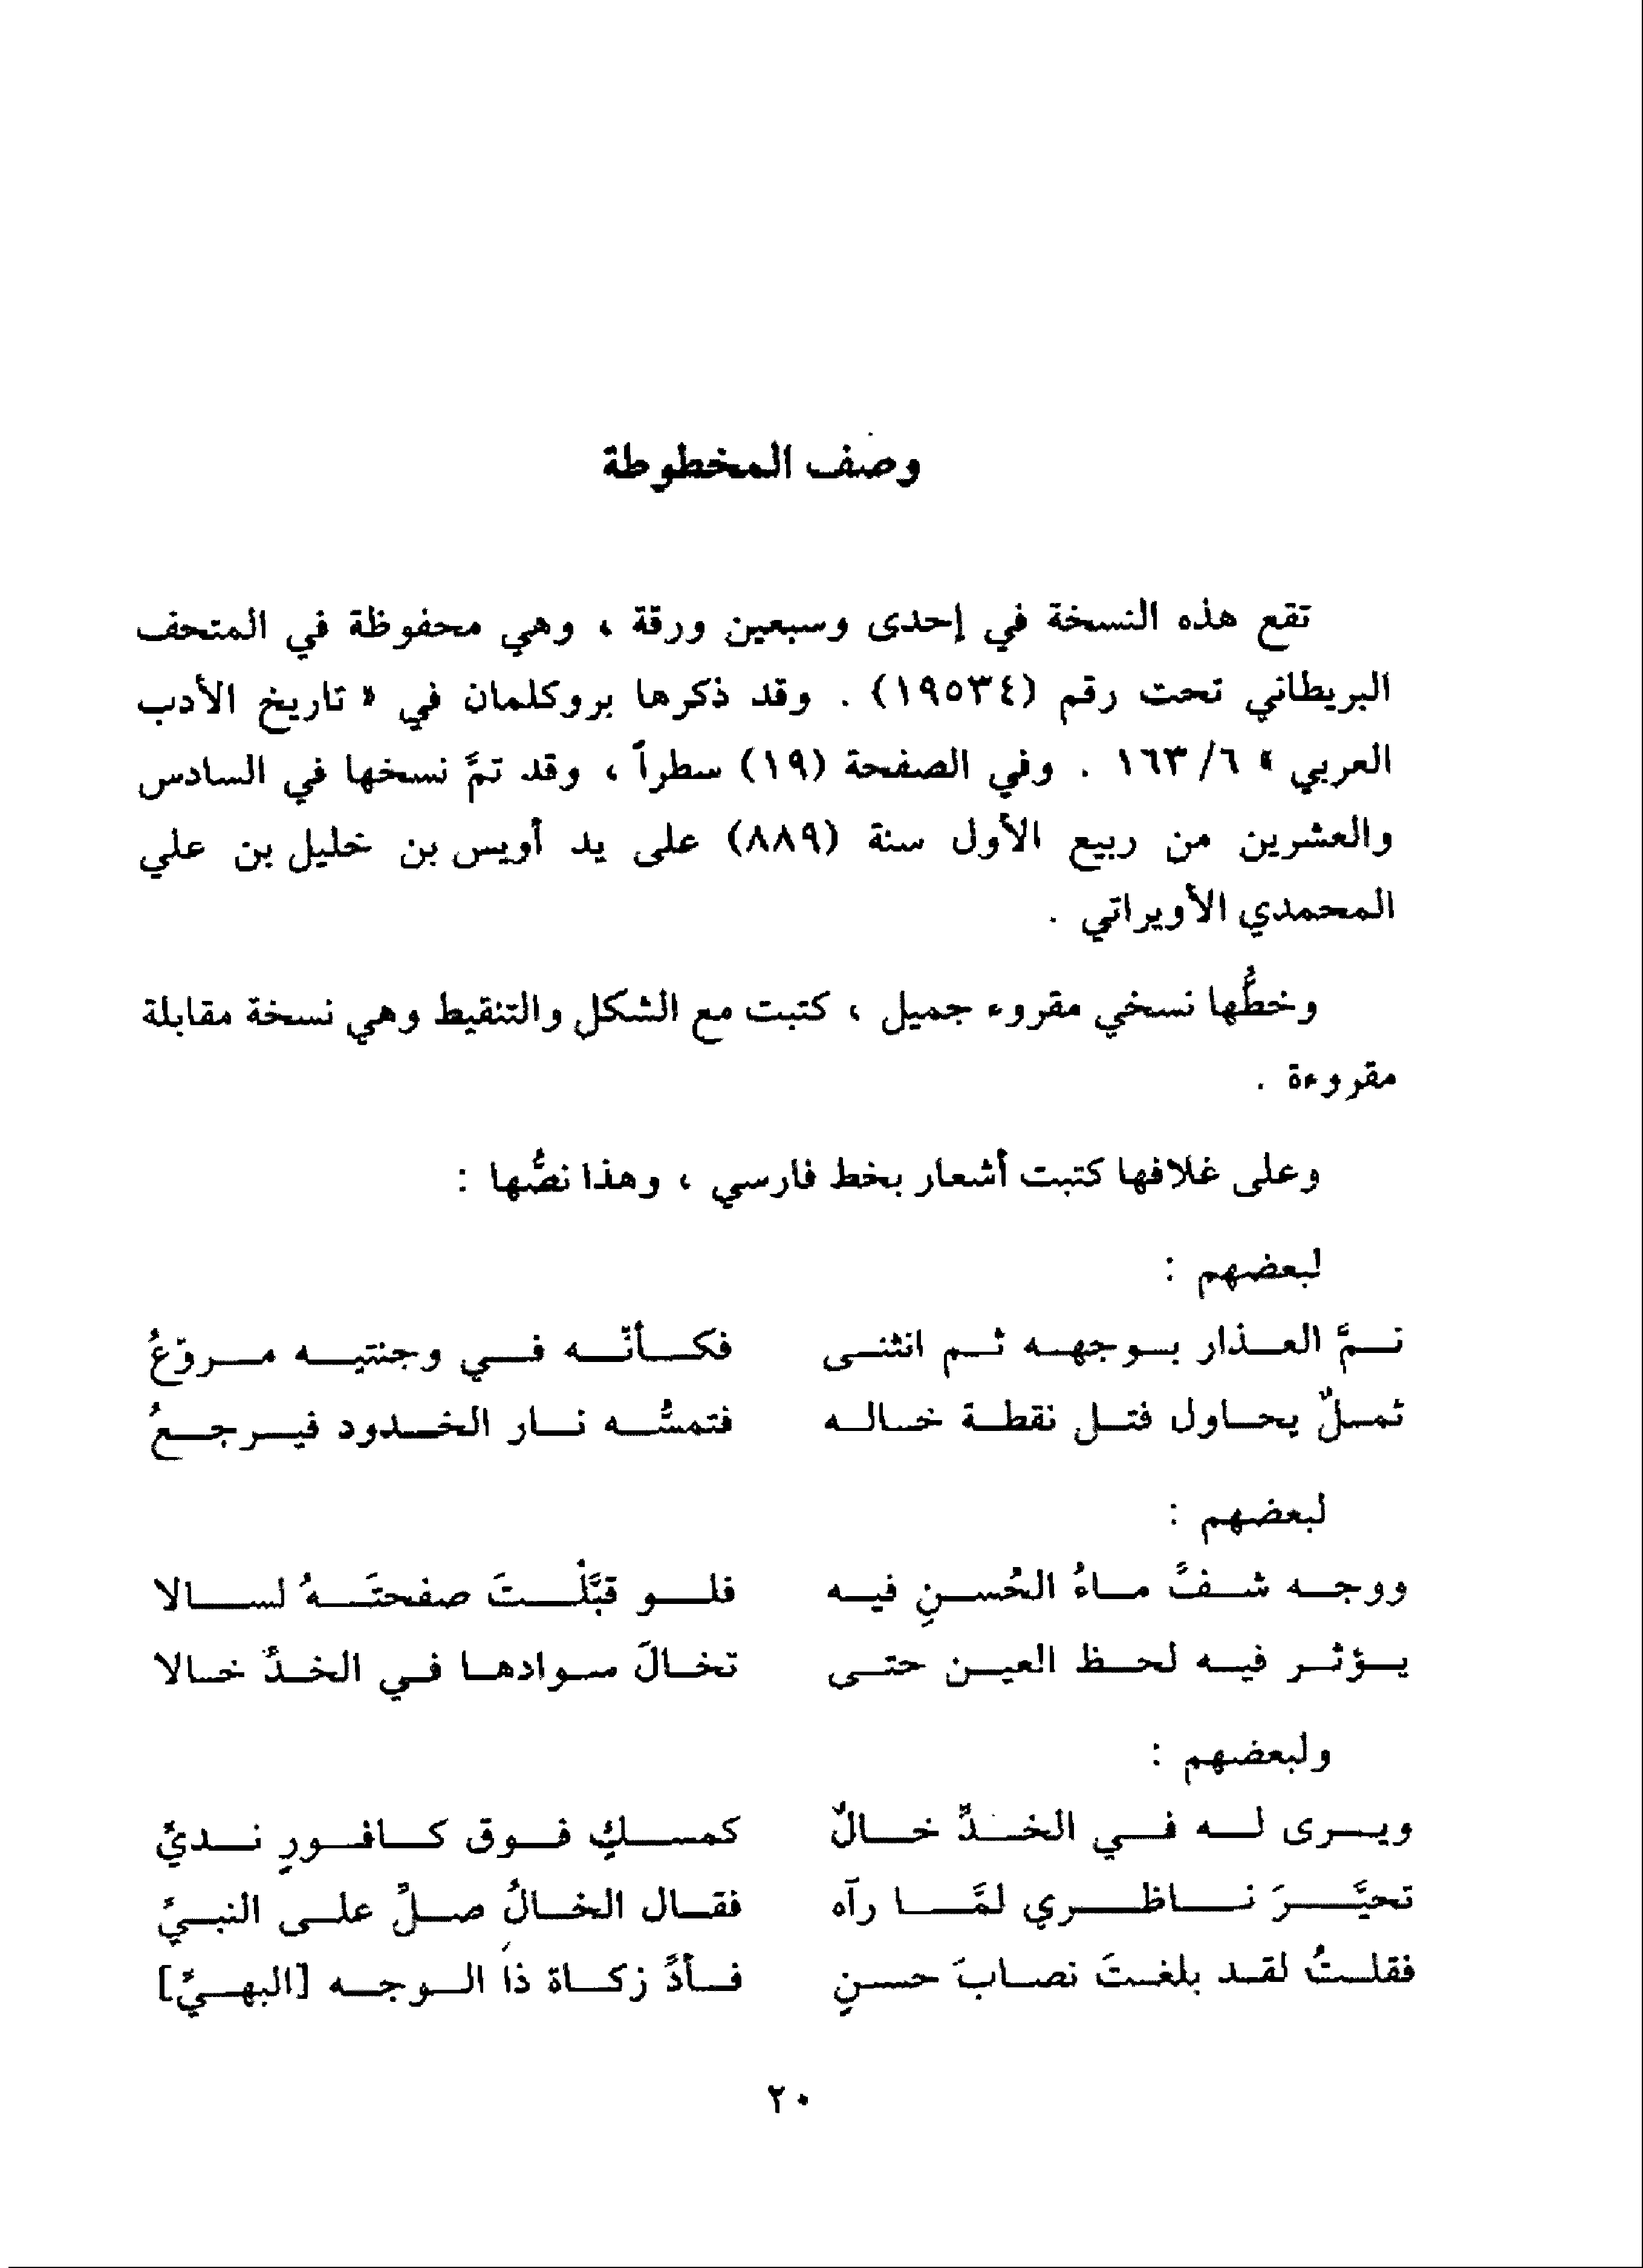 وصف المخطوطة
تقع هذه النسخة في إحدى وسبعين ورقة ، وهي محفوظة في المتحف
البريطاني تحت رقم (١٩٥٣٤) . وقد ذكرها بروكلمان في « تاريخ الأدب
العربي » ٦/ ١٦٣ . وفي الصفحة (١٩) سطراً ، وقد تمَّ نسخها في السادس
والعشرين من ربيع الأول سنة (٨٨٩) على يد أويس بن خليل بن علي
المحمدي الأويراتي .
وخطُّها نسخي مقروء جميل ، كتبت مع الشكل والتنقيط وهي نسخة مقابلة
مقروءة .
وعلى غلافها كتبت أشعار بخط فارسي ، وهذا نصُّها :
لبعضهم :
نمَّ العذار بوجهه ثم انثنى فكأنّه في وجنتيه مروّعُ
ثملٌ يحاول فتل نقطة خاله فتمسُّه نار الخدود فيرجعُ
لبعضهم :
ووجه شفَّ ماءُ الحُسنِ فيه فلو قبَّلْتَ صفحتَهُ لسالا
يؤثر فيه لحظ العين حتى تخالَ سوادها في الخدِّ خالا
ولبعضهم :
ويرى له في الخدِّ خالٌ كمسكٍ فوق كافورٍ نديِّ
تحيَّرَ ناظري لمَّا رآه فقال الخالُ صلِّ على النبيِّ
فقلتُ لقد بلغتَ نصابَ حسنٍ فأدِّ زكاة ذا الوجه [البهيِّ]
٢٠